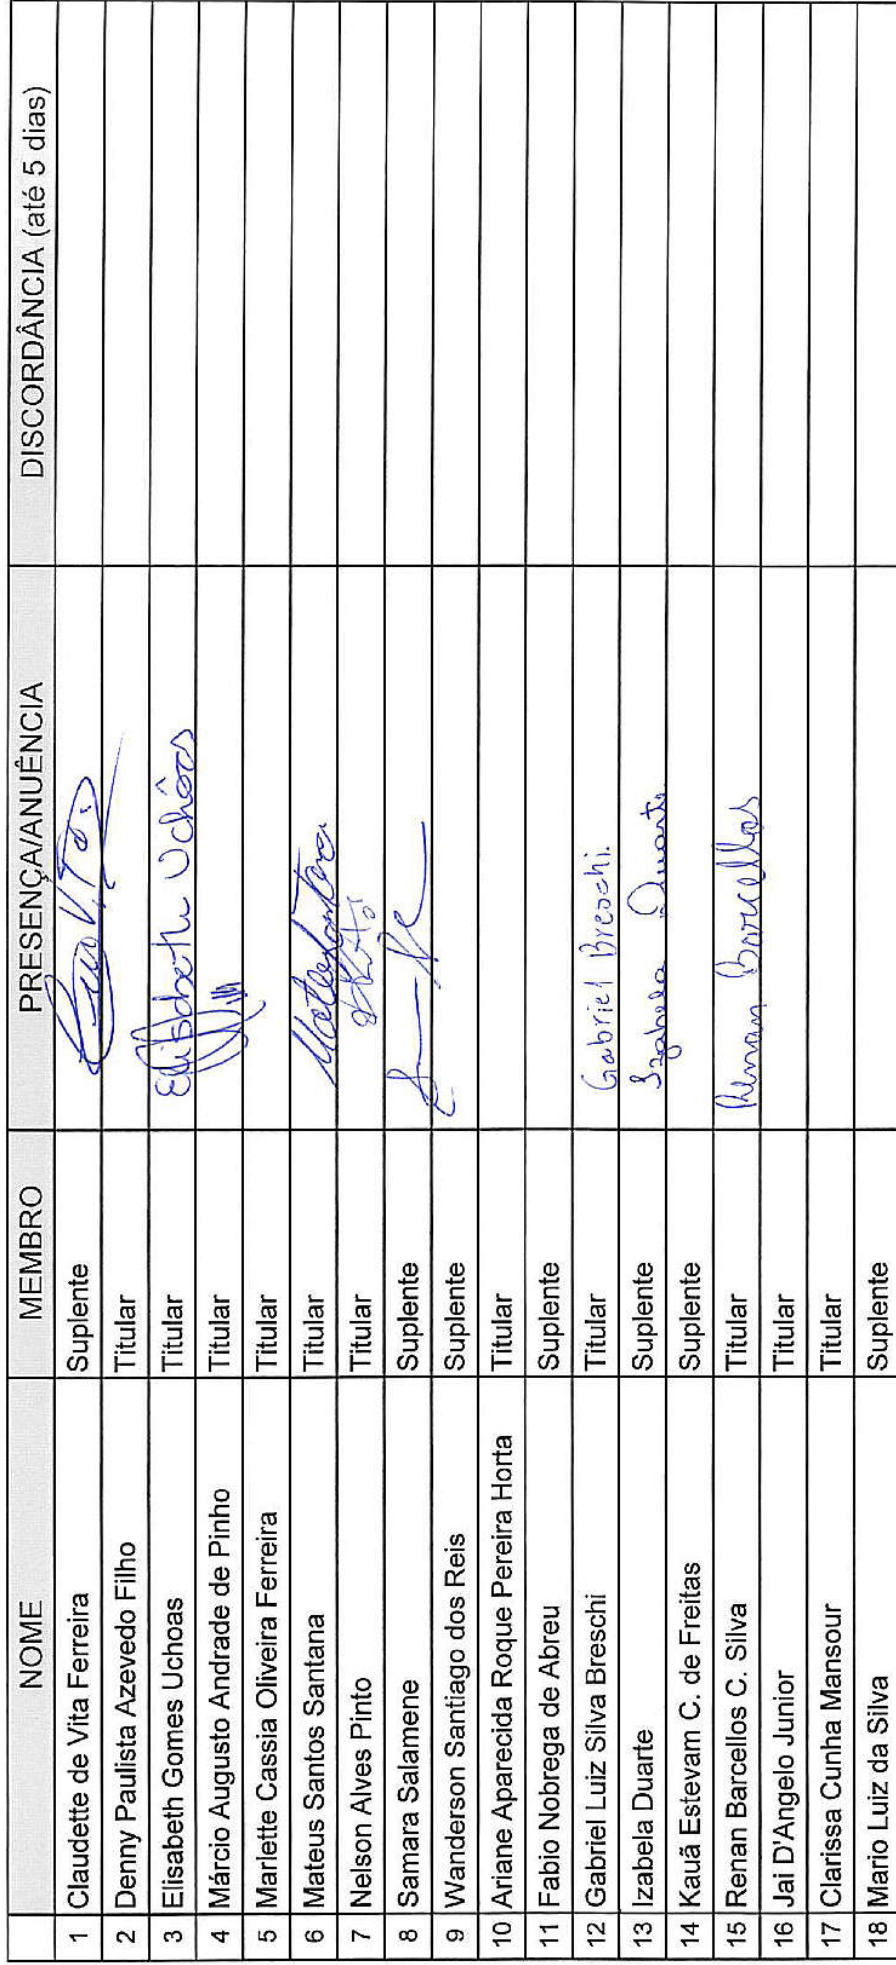 NOME MEMBRO PRESENÇA/ANUÊNCIA DISCORDÂNCIA (até 5 dias)
1 Claudette de Vita Ferreira Suplente
2 Denny Paulista Azevedo Filho Titular
3 Elisabeth Gomes Uchoas Titular Elisabeth Uchôas
4 Márcio Augusto Andrade de Pinho Titular
5 Marlette Cassia Oliveira Ferreira Titular
6 Mateus Santos Santana Titular
7 Nelson Alves Pinto Titular
8 Samara Salamene Suplente
9 Wanderson Santiago dos Reis Suplente
10 Ariane Aparecida Roque Pereira Horta Titular
11 Fabio Nobrega de Abreu Suplente
12 Gabriel Luiz Silva Breschi Titular Gabriel Breschi.
13 Izabela Duarte Suplente Izabela Duarte
14 Kauã Estevam C. de Freitas Suplente
15 Renan Barcellos C. Silva Titular Renan Barcellos
16 Jai D'Angelo Junior Titular
17 Clarissa Cunha Mansour Titular
18 Mario Luiz da Silva Suplente